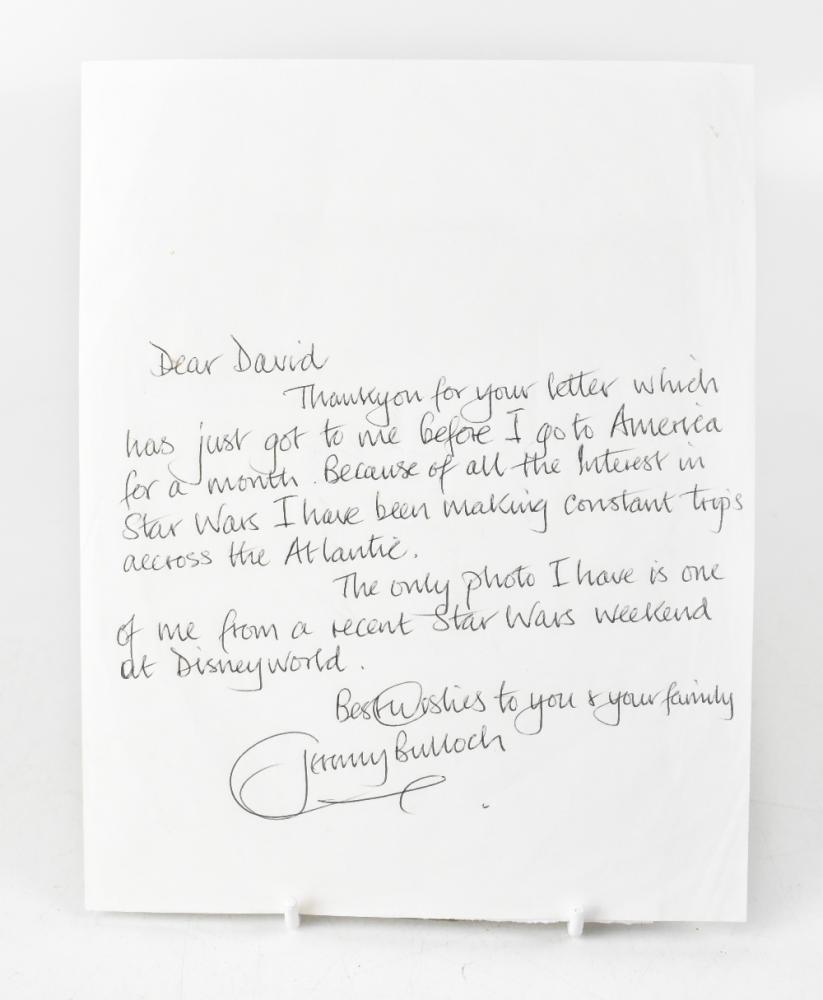 Dear David
Thankyou for your letter which
has just got to me before I go to America
for a month. Because of all the Interest in
Star Wars I have been making constant trips
accross the Atlantic.
The only photo I have is one
of me from a recent Star Wars weekend
at Disneyworld.
Best Wishes to you & your family
Jeremy Bulloch